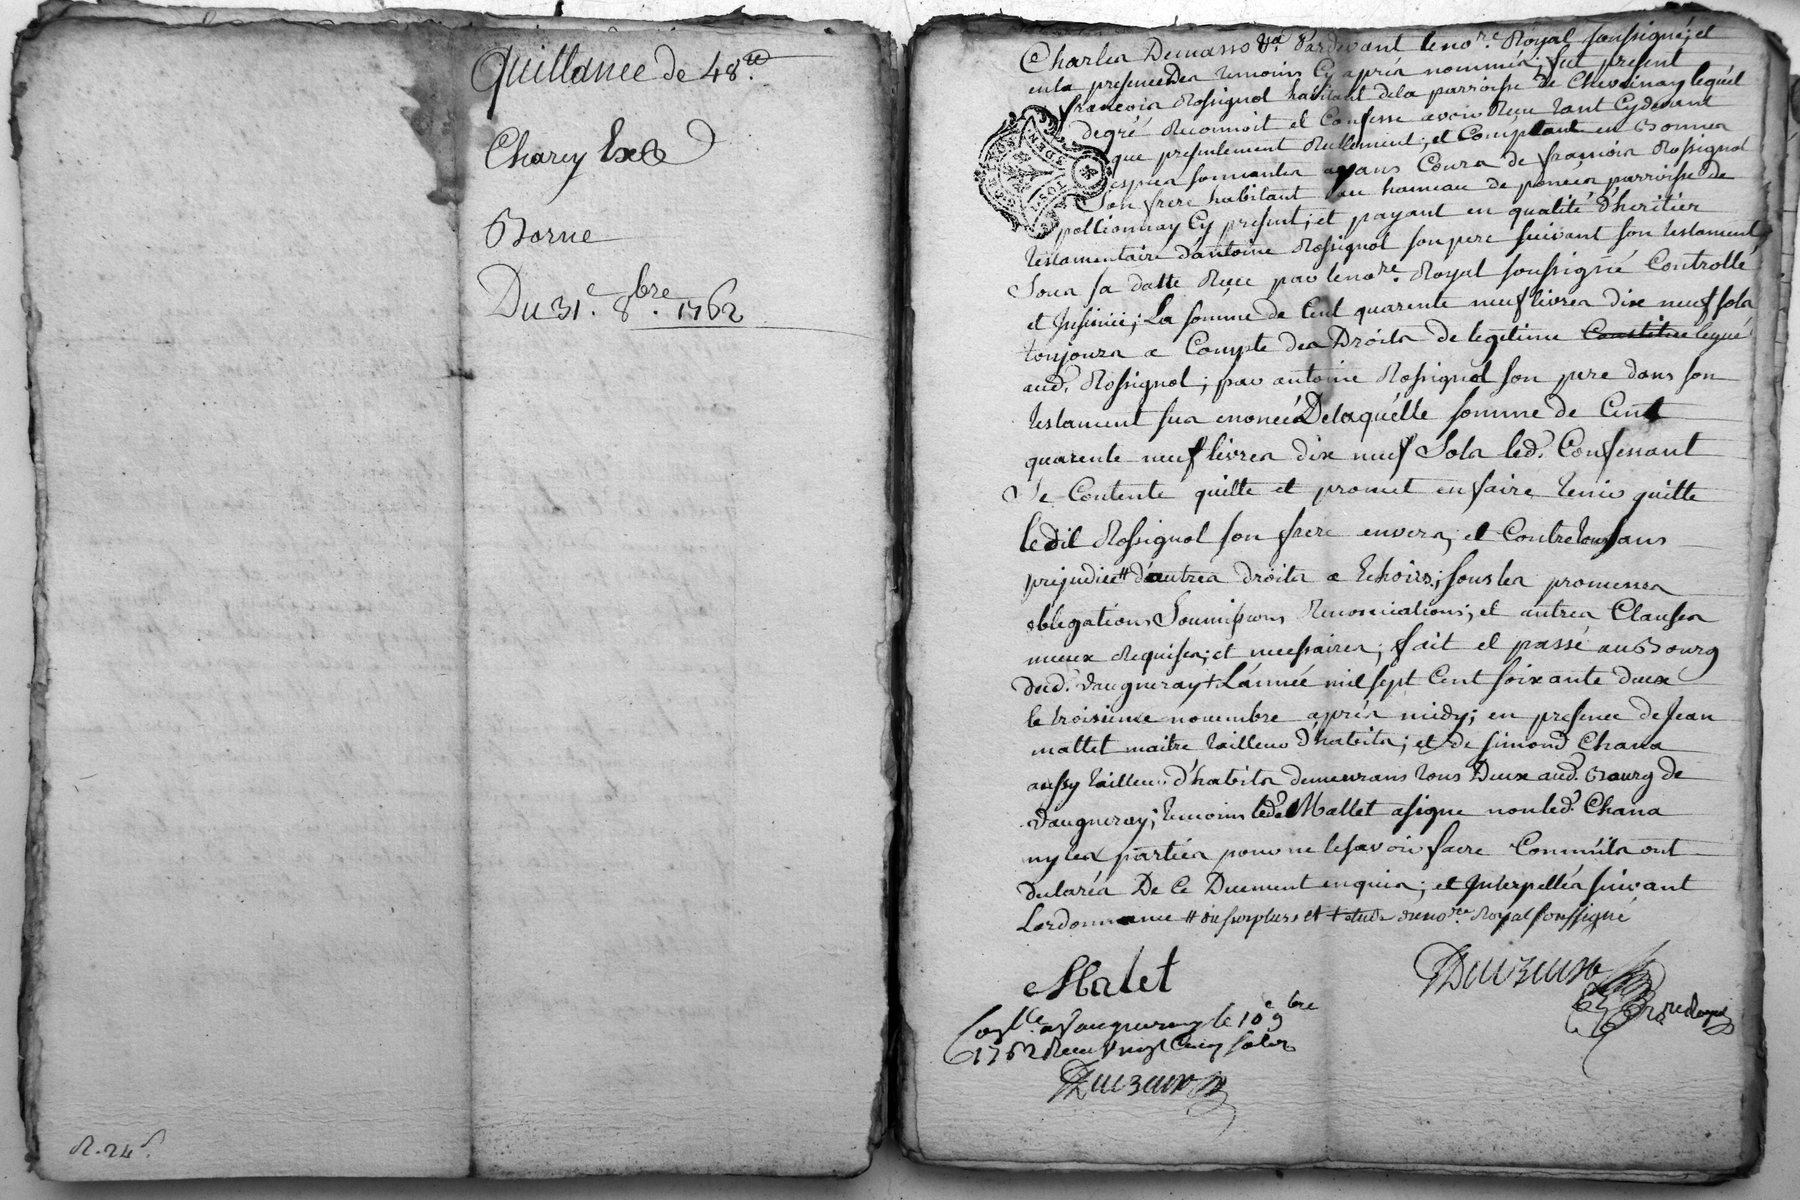 Quittance de 48ˡᵗ
Charcy
Borne
Du 31.ᵉ 8.ᵇʳᵉ 1762
R. 24ˢ.
Pardevant le noʳᵉ. Royal soussigné; et
en la presence des temoins cy après nommés; fut present
françois Rossignol habitant de la parroisse de Chevinay lequel
de gré Reconnoit et Confesse avoir Reçu tant cy devant
que presentement Reellement; et Comptant en Bonnes
especes sonnantes ayans Cours de françois Rossignol
Son frere habitant au hameau de poncea parroisse de
pollionnay Cy present; et payant en qualité d'heritier
testamentaire d'antoine Rossignol son pere suivant son testament
Sous sa datte Reçu par le noʳᵉ. Royal soussigné Controllé
et Insinué; La somme de Cent quarente neuf livres dix neuf sols
toujours a Compte des Droits de legitime Constitue legué
aud. Rossignol; par antoine Rossignol son pere dans son
testament sus enoncé De laquelle somme de Cent
quarente neuf livres dix neuf Sols led. Confessant
Se Contente quitte et promet en faire tenir quitte
ledit Rossignol son frere envers; et Contre tous sans
prejudice # d'autres droits a Echoirs; sous les promesses
obligations Soumissions Renonciations; et autres Clauses
mieux Requises; et necessaires; fait et passé au Bourg
dud. Vaugneray + L'année mil sept Cent soixante deux
le troisieme novembre après midy; en presence de Jean
mallet maitre tailleur d'habits; et de simond Chana
aussy tailleur d'habits demeurans tous Deux aud. Bourg de
Vaugneray; temoins led. Mallet a signe non led. Chana
ny les parties pour ne le savoir faire Comm'ils ont
declarés De Ce Duement enquis; et Interpellés suivant
Lordonnance # du surplus et + etude du noʳᵉ. Royal soussigné
Malet
Conˡˡᵉ a Vaugneray le 10ᵉ 9ᵇʳᵉ
1762 Reçu Vingt Cinq sols